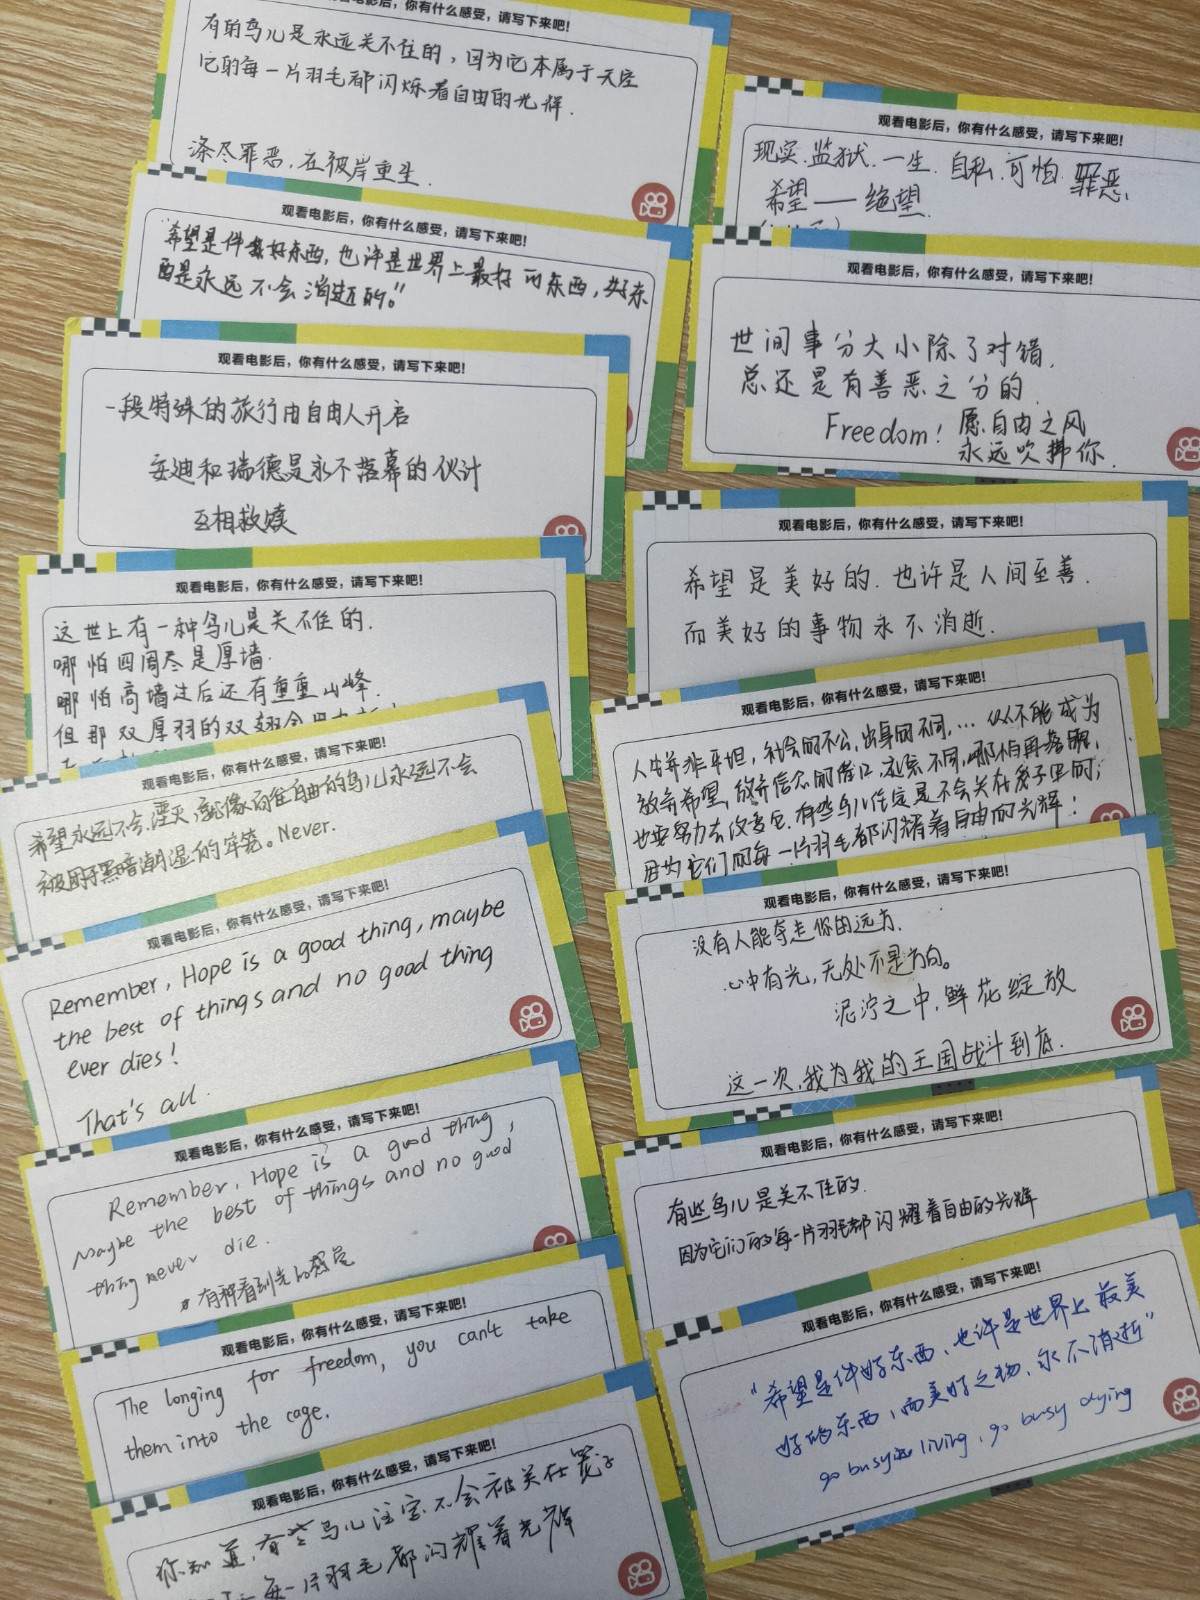 有的鸟儿是永远关不住的，因为它本属于天空
它的每一片羽毛都闪烁着自由的光辉.
涤尽罪恶.在彼岸重生.
观看电影后，你有什么感受，请写下来吧！
"希望是件美好东西，也许是世界上最好的东西，好东
西是永远不会消逝的。"
观看电影后，你有什么感受，请写下来吧！
一段特殊的旅行由自由人开启
安迪和瑞德是永不落幕的伙计
互相救赎
观看电影后，你有什么感受，请写下来吧！
这世上有一种鸟儿是关不住的.
哪怕四周尽是厚墙.
哪怕高墙过后还有重重山峰.
但那双厚羽的双翅会
观看电影后，你有什么感受，请写下来吧！
希望永远不会湮灭，就像向往自由的鸟儿永远不会
被困于黑暗潮湿的牢笼。Never.
观看电影后，你有什么感受，请写下来吧！
Remember, Hope is a good thing, maybe
the best of things and no good thing
ever dies!
That's all.
观看电影后，你有什么感受，请写下来吧！
Remember, Hope is a good thing,
Maybe the best of things and no good
thing never die.
有种看到光的感觉
观看电影后，你有什么感受，请写下来吧！
The longing for freedom, you can't take
them into the cage.
观看电影后，你有什么感受，请写下来吧！
你知道，有些鸟儿注定不会被关在笼子
每一片羽毛都闪耀着光辉
观看电影后，你有什么感受，请写下来吧！
现实.监狱.一生.自私.可怕.罪恶.
希望——绝望.
观看电影后，你有什么感受，请写下来吧！
世间事分大小除了对错.
总还是有善恶之分的.
Freedom！愿自由之风
永远吹拂你.
观看电影后，你有什么感受，请写下来吧！
希望是美好的.也许是人间至善.
而美好的事物永不消逝.
观看电影后，你有什么感受，请写下来吧！
人生并非平坦，社会的不公，出身的不同，…从不能成为
放弃希望，放弃信念的借口，不同，哪怕再落魄，
也要努力去改变它.有些鸟儿注定是不会关在笼子里的；
因为它们的每一片羽毛都闪耀着自由的光辉！
观看电影后，你有什么感受，请写下来吧！
没有人能夺走你的远方.
心中有光，无处不是方向。
泥泞之中，鲜花绽放
这一次，我为我的王国战斗到底.
观看电影后，你有什么感受，请写下来吧！
有些鸟儿是关不住的.
因为它们的每一片羽毛都闪耀着自由的光辉
观看电影后，你有什么感受，请写下来吧！
"希望是件好东西、也许是世界上最美
好的东西，而美好之物，永不消逝"
go busy living, go busy dying